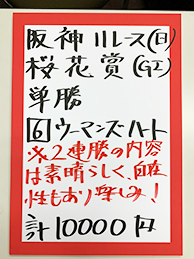 阪神11レース(日)
桜花賞(GI)
単勝
6 ウーマンズ・ハート
※2連勝の内容
は素晴らしく、自在
性もあり楽しみ!
計10000円